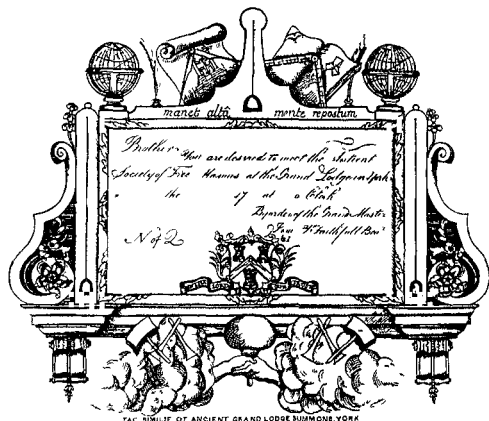 manet altâ mente repostum
Brother
You are desired to meet the Antient
Society of Free Masons at the Grand Lodge in York
the 17 at o Clock
By order of the Grand Master
Your Faithfull Bror
No of 2
FAC SIMILE OF ANCIENT GRAND LODGE SUMMONS, YORK